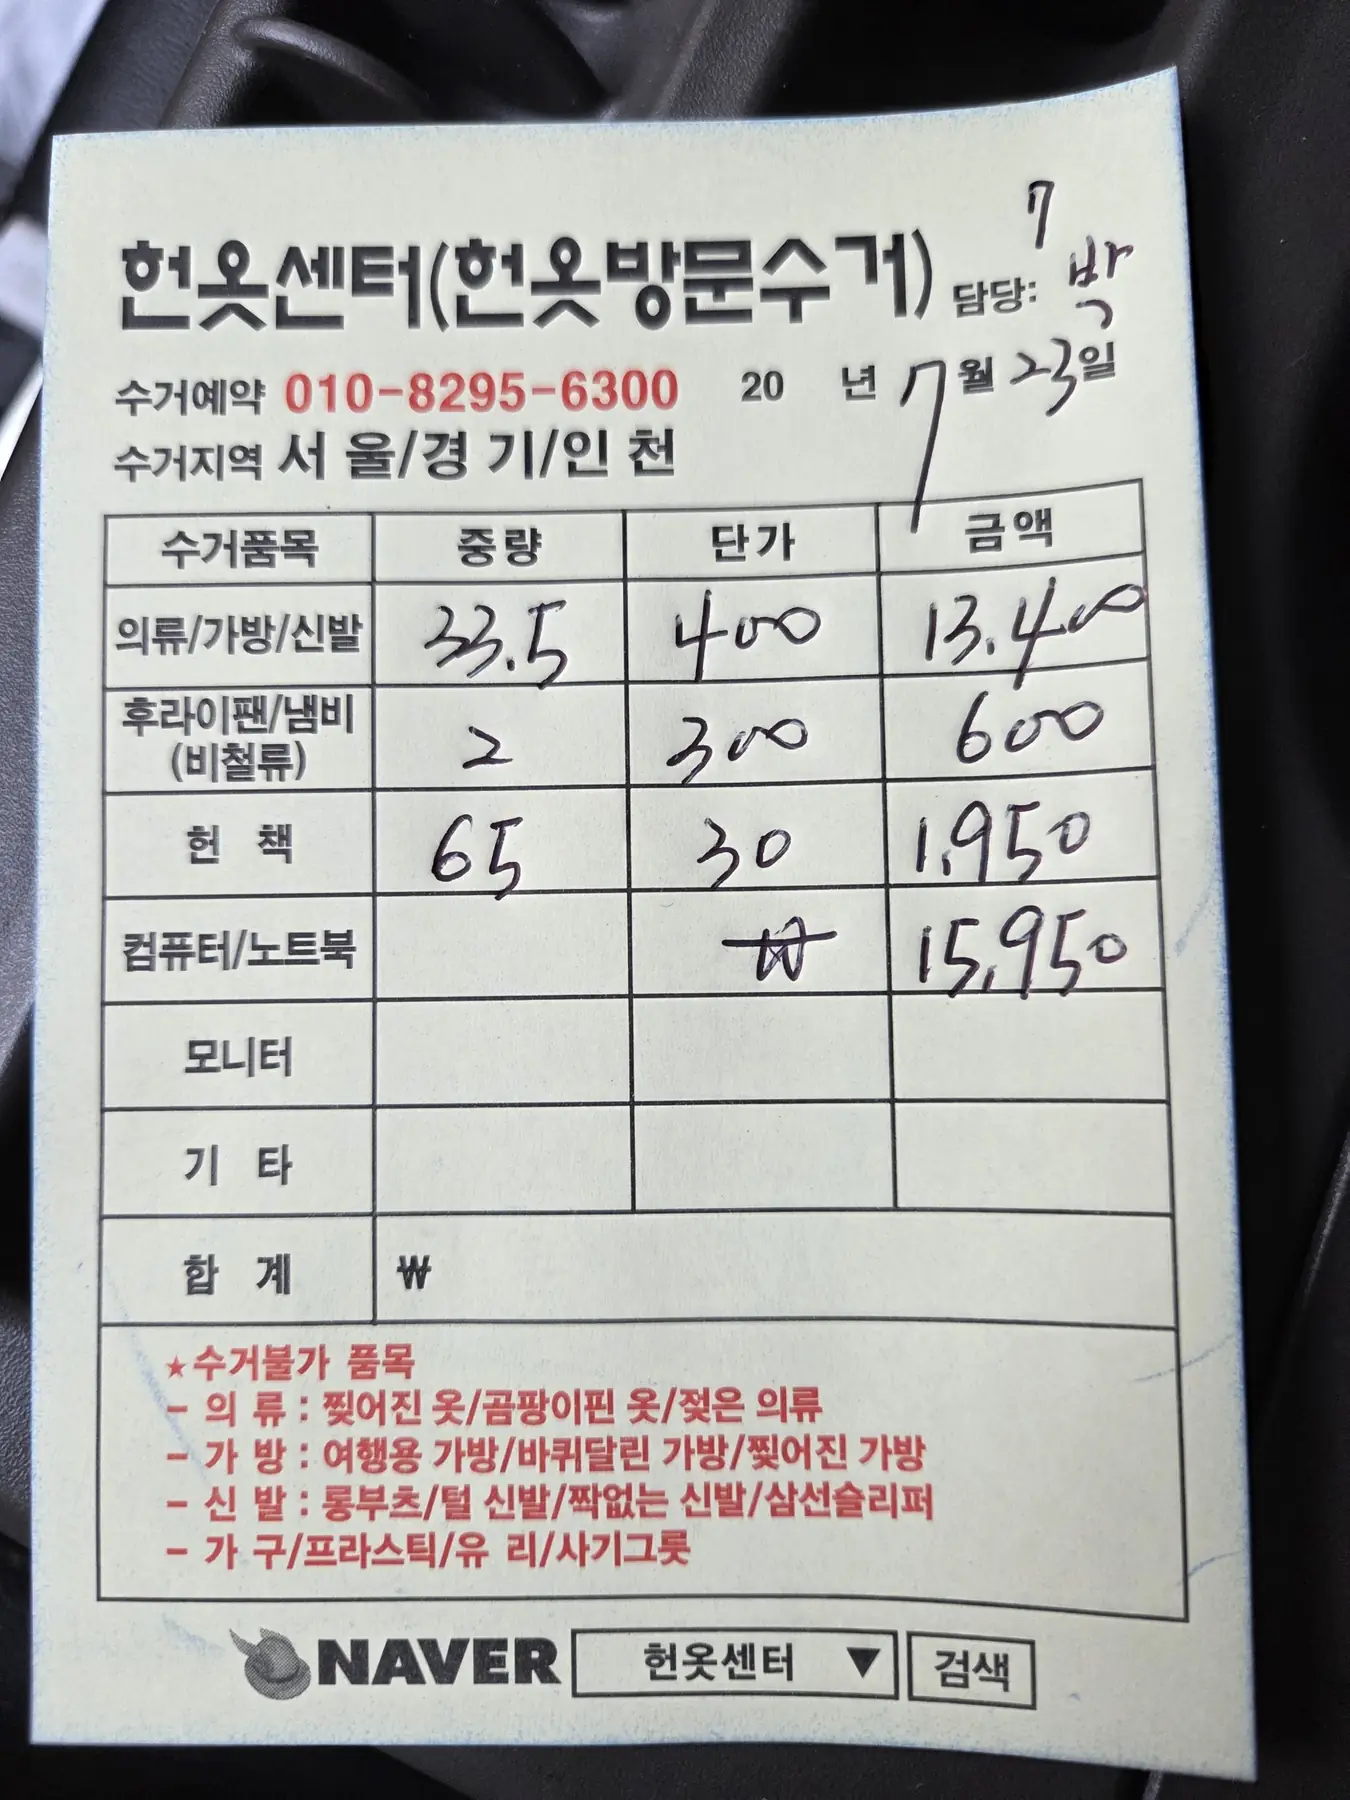 7
헌옷센터(헌옷방문수거) 담당: 박
수거예약 010-8295-6300 20 년 7월 23일
수거지역 서울/경기/인천
수거품목 중량 단가 금액
의류/가방/신발 33.5 400 13.400
후라이팬/냄비 (비철류) 2 300 600
헌 책 65 30 1,950
컴퓨터/노트북 ₩ 15,950
모니터
기 타
합 계 ₩
★수거불가 품목
- 의 류 : 찢어진 옷/곰팡이핀 옷/젖은 의류
- 가 방 : 여행용 가방/바퀴달린 가방/찢어진 가방
- 신 발 : 롱부츠/털 신발/짝없는 신발/삼선슬리퍼
- 가 구/프라스틱/유 리/사기그릇
NAVER 헌옷센터 ▼ 검색